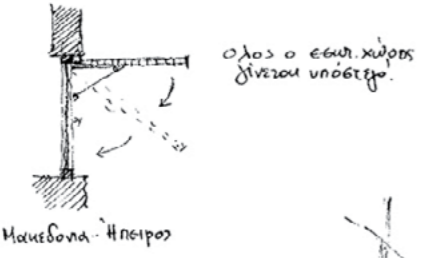 όλος ο εσωτ. χώρος
γίνεται υπόστεγο.
Μακεδονία - Ήπειρος